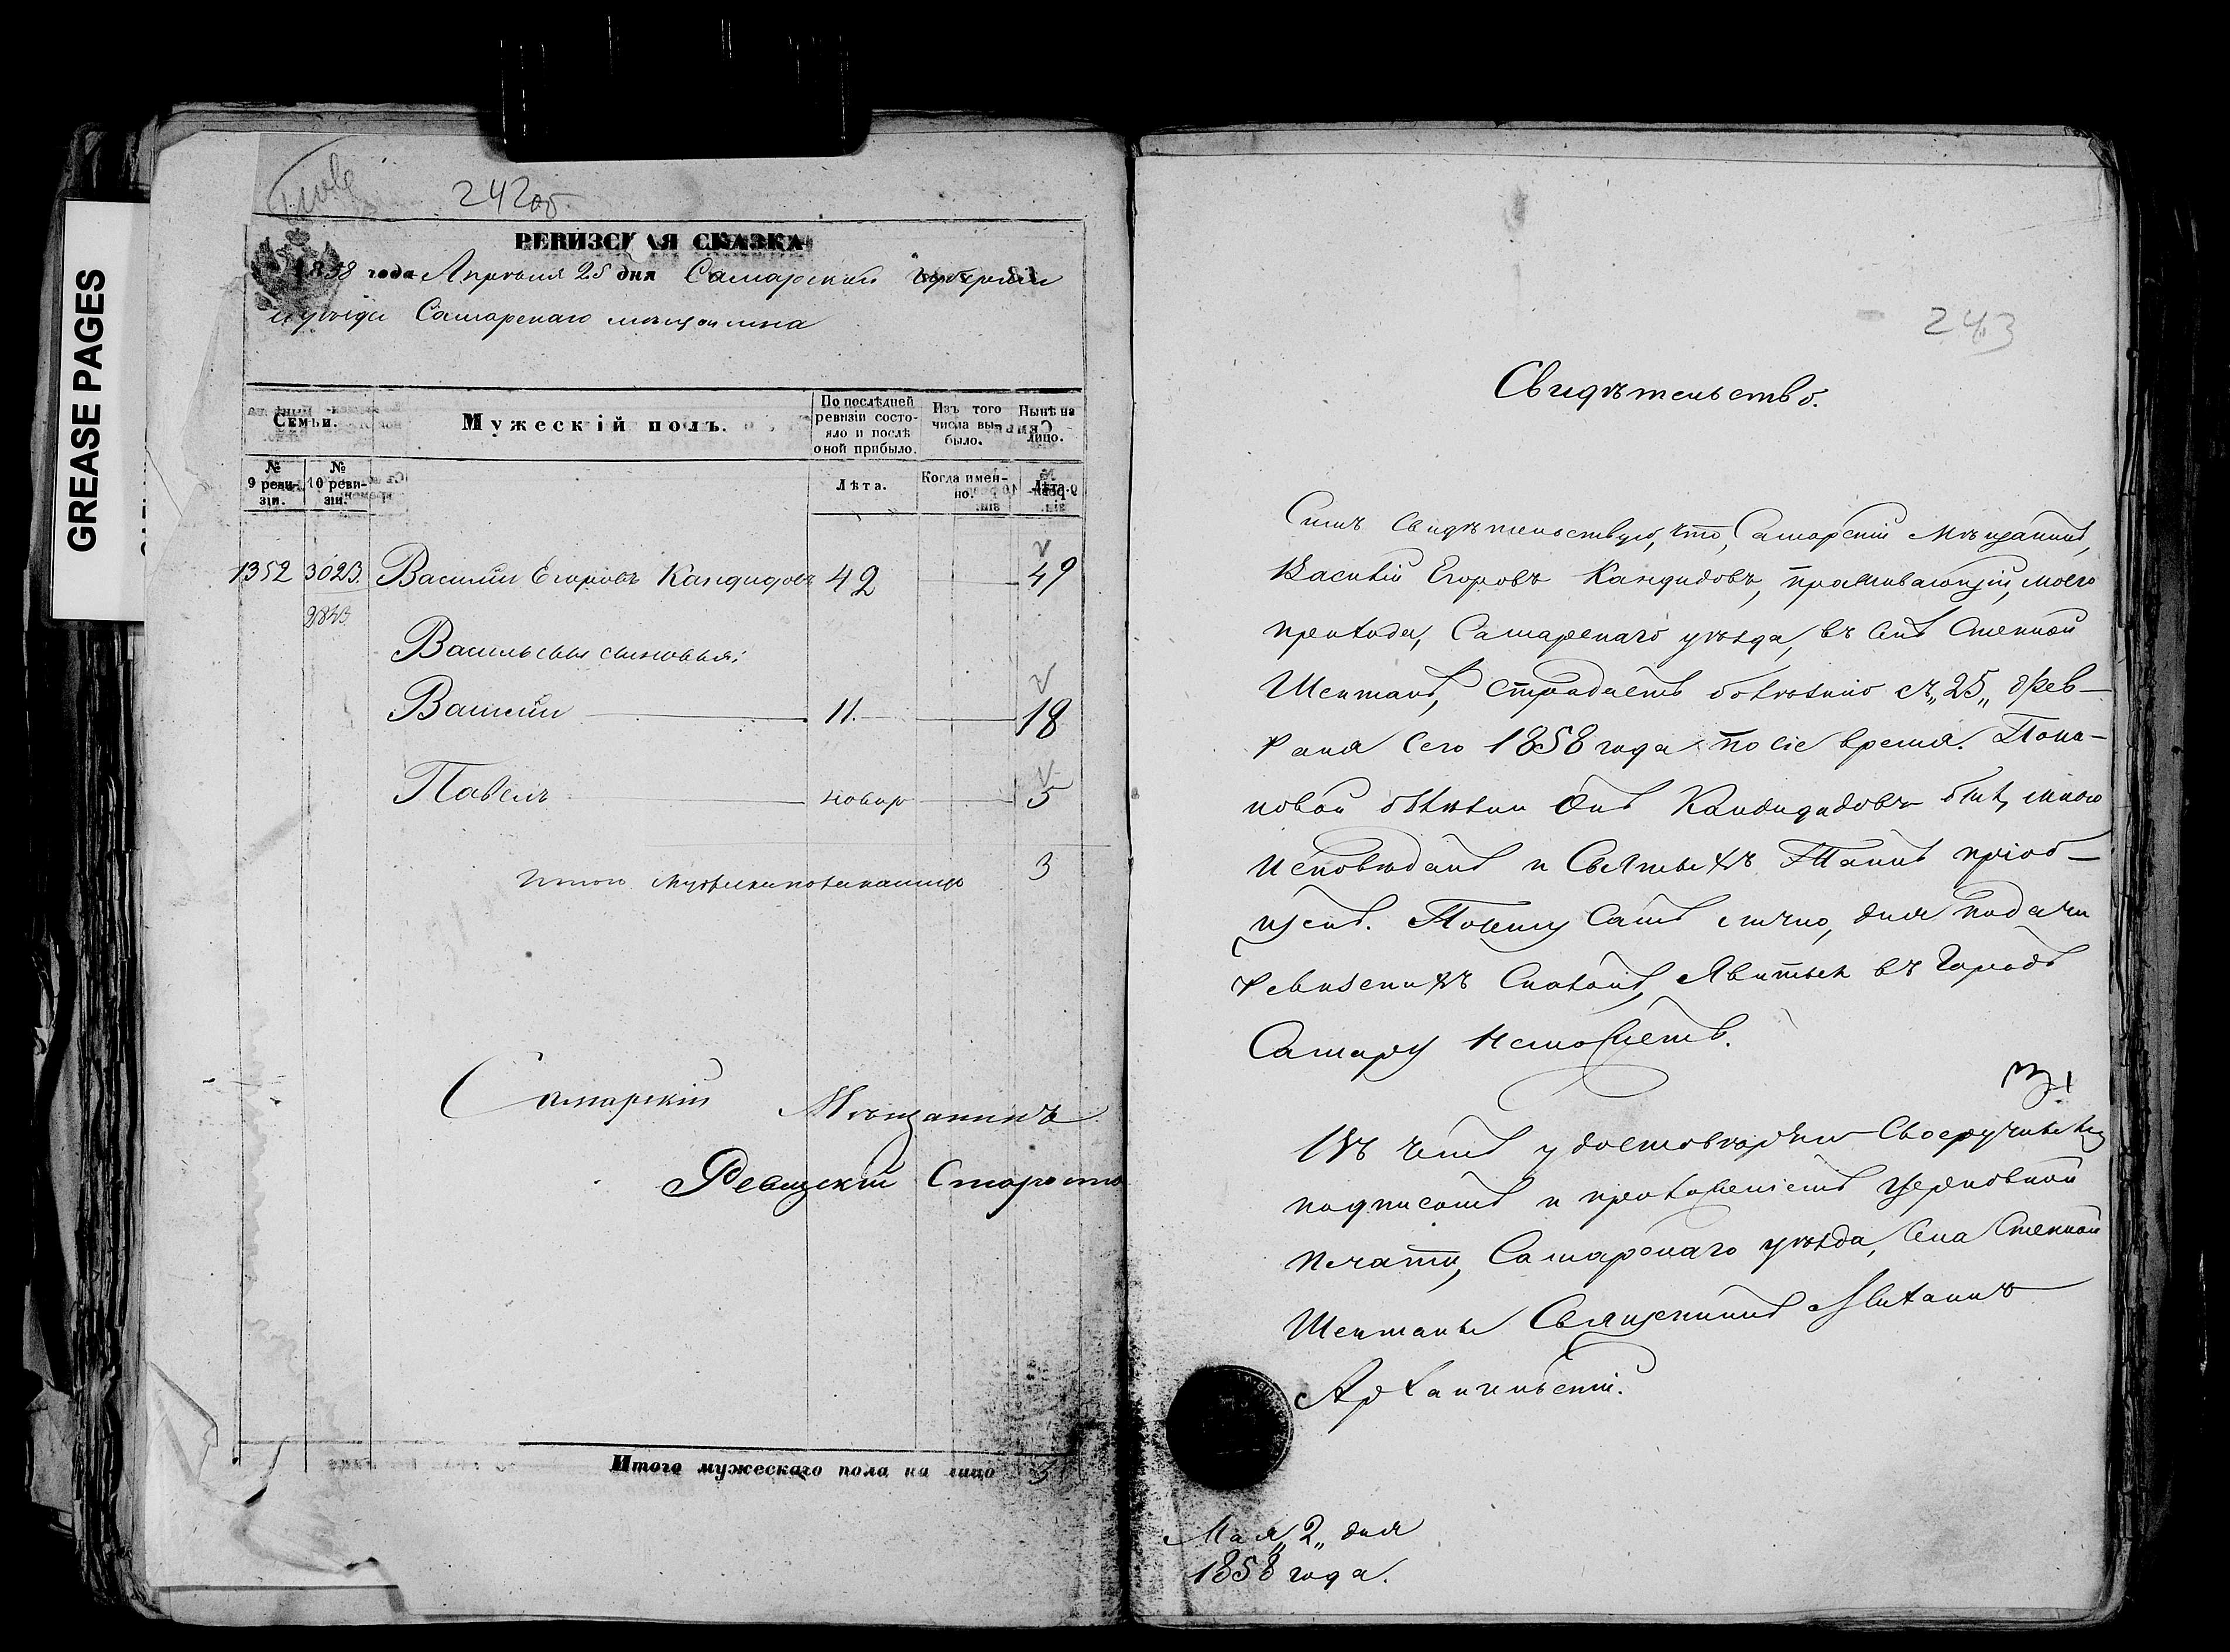 GREASE PAGES
242об.
РЕВИЗСКАЯ СКАЗКА
1858 года Апрѣля 25 дня Самарской губерніи
и уѣзда Самарскаго мѣщанина
Семьи.
Мужескій полъ.
По послѣдней ревизіи состояло и послѣ оной прибыло.
Изъ того числа выбыло.
Нынѣ на лицо.
№ 9 ревизіи.
№ 10 ревизіи.
Лѣта.
Когда именно.
Лѣта.
1352 3023. Василій Егоровъ Кандидовъ 42 49
Васильевы сыновья:
Василій 11. 18
Павелъ новор 5
Итого мужеска пола на лицо 3
Самарскій Мѣщанинъ
Ревизскій Староста
Итого мужескаго пола на лицо 3
243
Свидѣтельство.
Симъ свидѣтельствую, что, Самарскій Мѣщанинъ,
Василій Егоровъ Кандидовъ, проживающій, моего
прихода, Самарскаго уѣзда, въ селѣ Степной
Шенталѣ, страдаетъ болѣзнію съ „25„ Фев-
раля сего 1858 года по сіе время. Тако-
новой болѣзни Онъ Кандидадовъ былъ, мною
Исповѣданъ и Святыхъ Таинъ пріоб-
щенъ. Почему Самъ лично, для подачи
Ревизскихъ Сказокъ, Явиться въ Городъ
Самару неможетъ.
Въ чемъ удостовѣряю Своеручнымъ
подписомъ и приложеніемъ Церковной
печати, Самарскаго уѣзда, Села Степной
Шенталы Священникъ Михаилъ
Архангельскій.
Мая „2„ дня
1858 года.